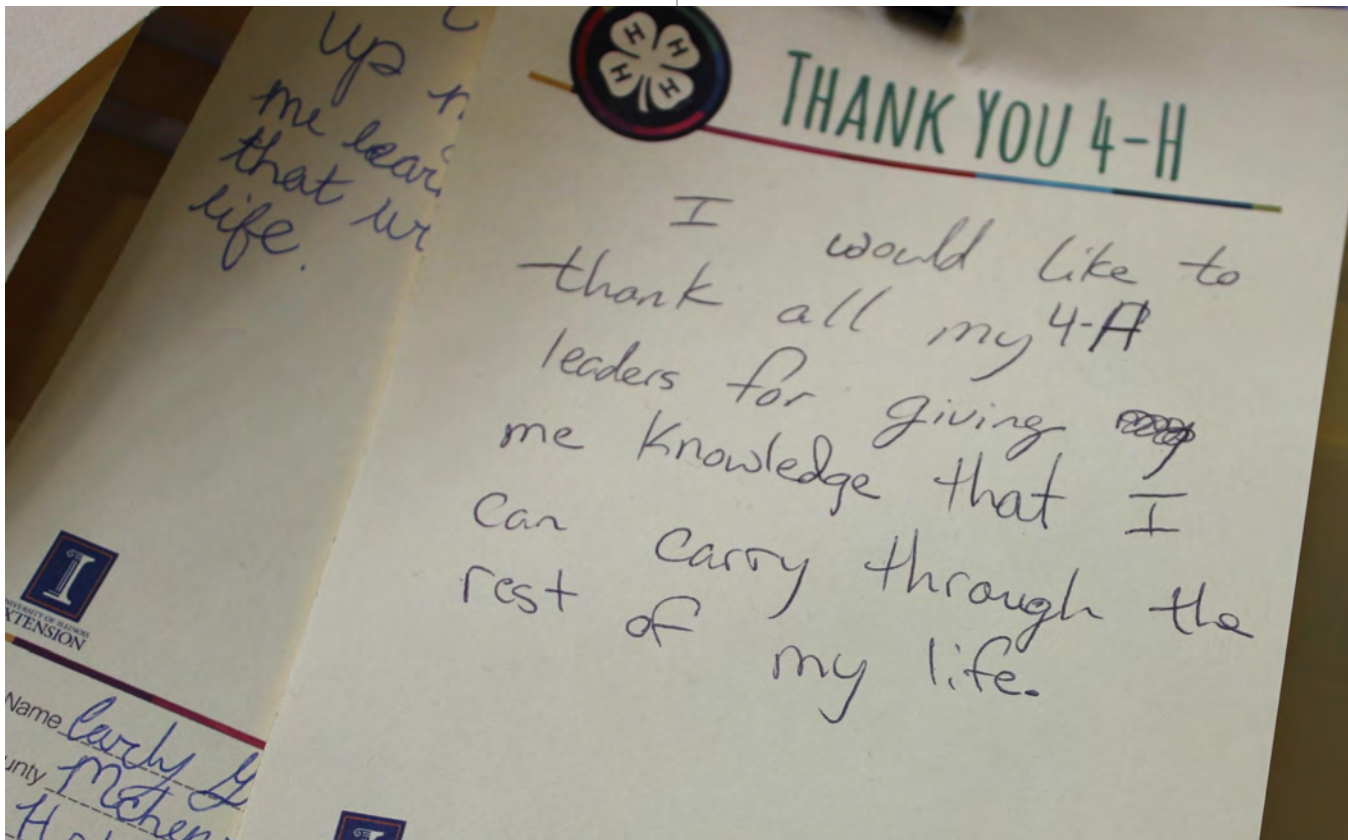 up
me
that
life.
UNIVERSITY OF ILLINOIS
EXTENSION
Name Carly
McHen
H H
H H
THANK YOU 4-H
I would like to
thank all my 4-H
leaders for giving
me knowledge that I
can carry through the
rest of my life.